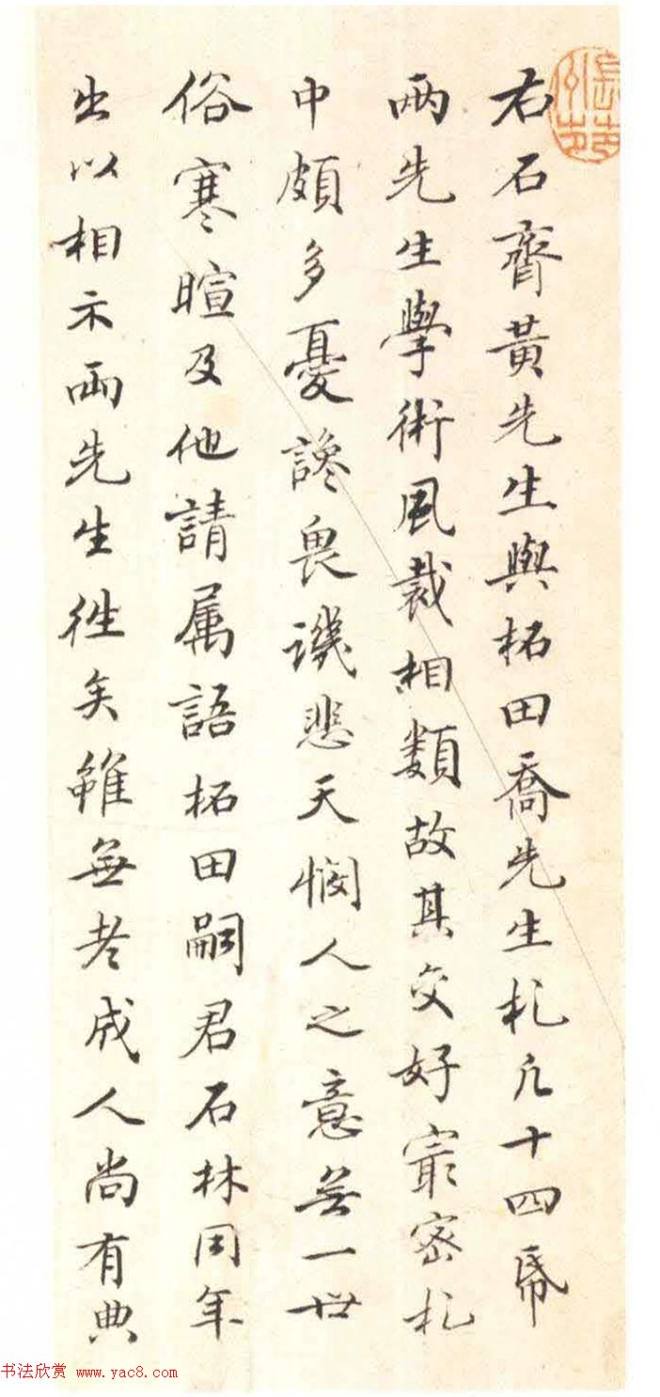 右石齊黃先生與柘田喬先生札凡十四帋
兩先生學術風裁相類故其交好寂密札
中頗多憂讒畏譏悲天憫人之意無一世
俗寒暄及他請属語柘田嗣君石林同年
出以相示兩先生往矣雖無老成人尚有典
书法欣赏 www.yac8.com